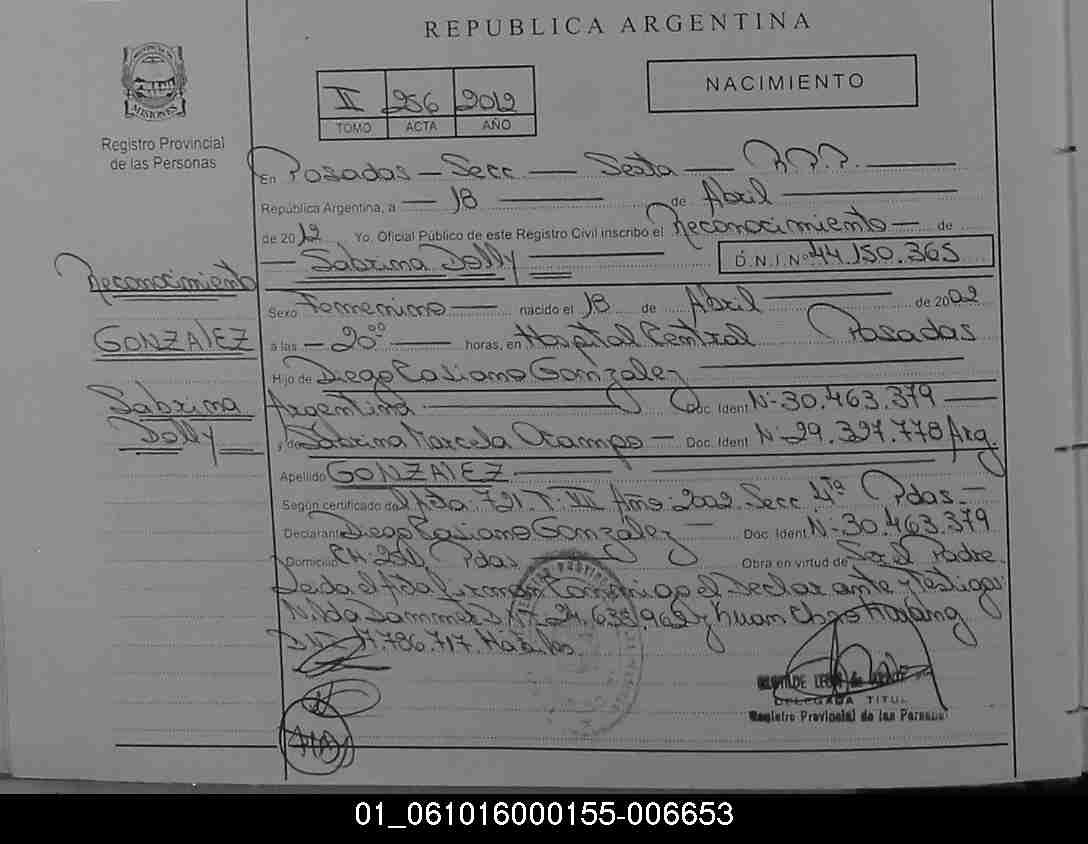 REPUBLICA ARGENTINA
PROVINCIA DE
MISIONES
Registro Provincial
de las Personas
II 256 2012
TOMO ACTA AÑO
NACIMIENTO
En Posadas - Secc - Sexta - R.P.P.
República Argentina, a - 18 - de Abril
de 2012 Yo. Oficial Público de este Registro Civil inscribo el Reconocimiento - de
- Sabrina Dolly D.N.I. Nº 44.150.365
Reconocimiento
GONZALEZ
Sabrina
Dolly
Sexo Femenino - nacido el 18 de Abril - de 2002
a las - 20⁰⁰ - horas, en Hospital Central Posadas
Hijo de Diego Casiano Gonzalez
Argentina - Doc. Ident. Nº 30.463.379 -
y de Sabrina Marcela Ocampo - Doc. Ident. Nº 29.327.778 Arg.
Apellido GONZALEZ
Según certificado del Acta: 721. T: VII Año: 2002. Secc 4ta Pdas. -
Declarante Diego Casiano González - Doc. Ident. Nº 30.463.379
Domicilio CH: 251 Pdas Obra en virtud de Ser el Padre
Leida el Acta firman Conmigo el Declarante y Testigos
Nilda 24.639.962 y Juan
D.N.I. 786.717.
DELEGADA TITUL
Registro Provincial de las Personas
01_061016000155-006653